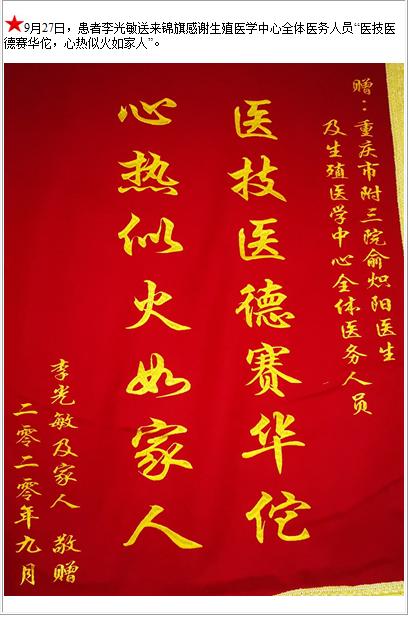 9月27日，患者李光敏送来锦旗感谢生殖医学中心全体医务人员“医技医
德赛华佗，心热似火如家人”。
赠：重庆市附三院俞炽阳医生
及生殖医学中心全体医务人员
医技医德赛华佗
心热似火如家人
李光敏及家人 敬赠
二零二零年九月